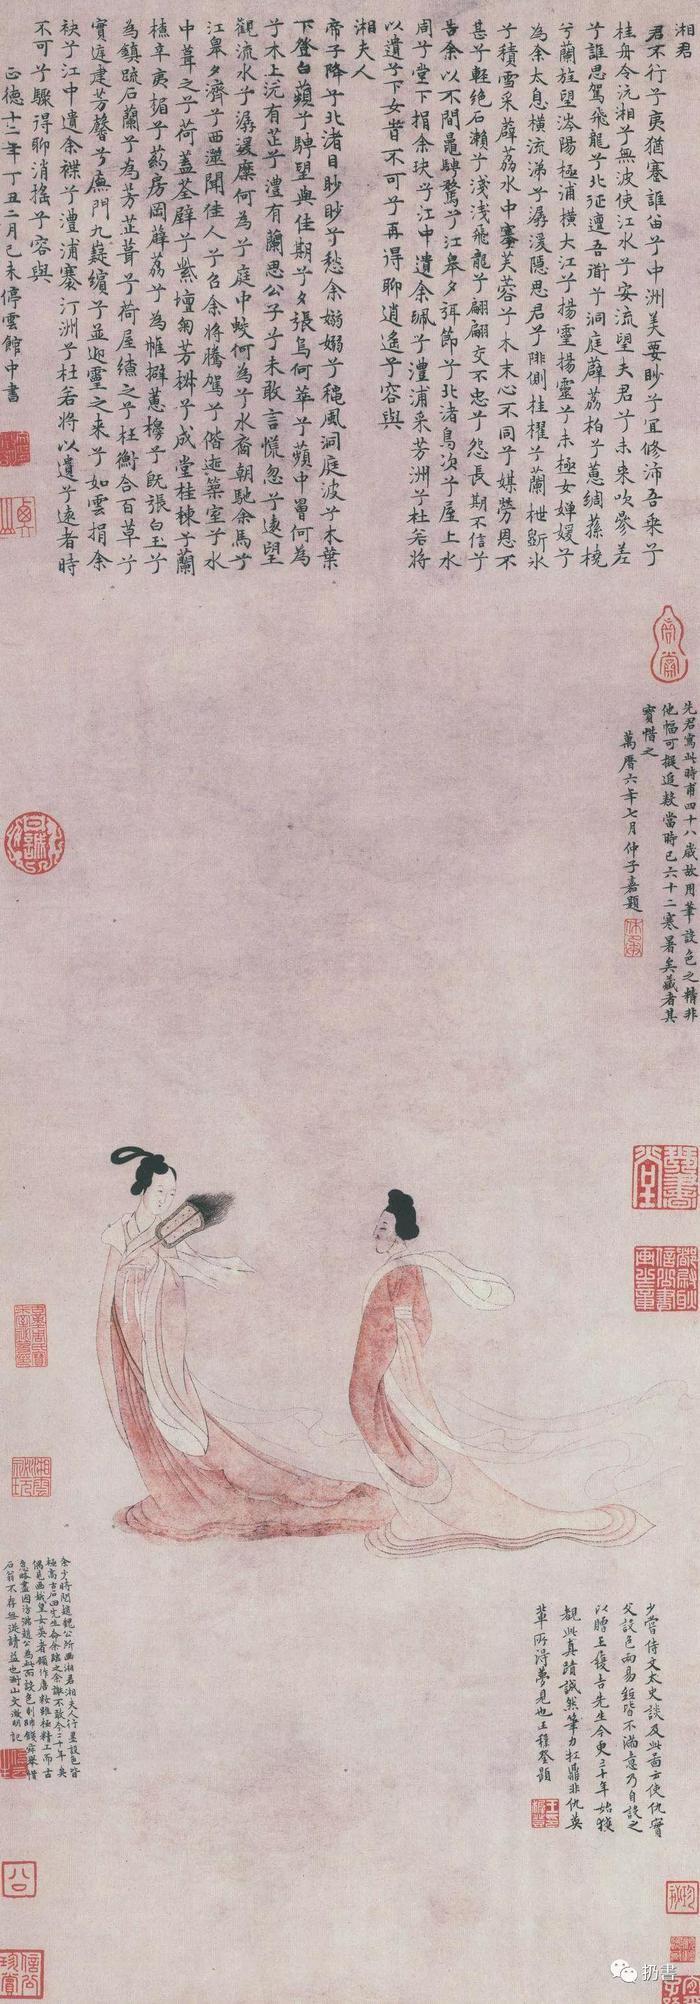 湘君
君不行兮夷猶蹇誰留兮中洲美要眇兮宜修沛吾乘兮
桂舟令沅湘兮無波使江水兮安流望夫君兮未来吹參差
兮誰思駕飛龍兮北征邅吾衜兮洞庭薜荔柏兮蕙綢蓀橈
兮蘭旌望涔陽極浦横大江兮揚靈揚靈兮未極女嬋媛兮
為余太息横流涕兮潺湲隱思君兮陫側桂櫂兮蘭枻斲氷
兮積雪采薜荔水中搴芙蓉兮木末心不同兮媒勞恩不
甚兮輕絶石瀨兮淺淺飛龍兮翩翩交不忠兮怨長期不信兮
告余以不閒鼂騁騖兮江皋夕弭節兮北渚鳥次兮屋上水
周兮堂下捐余玦兮江中遺余珮兮澧浦采芳洲兮杜若將
以遺兮下女旹不可兮再得聊逍遙兮容與
湘夫人
帝子降兮北渚目眇眇兮愁余嫋嫋兮穐風洞庭波兮木葉
下登白薠兮騁望與佳期兮夕張鳥何萃兮蘋中罾何為
兮木上沅有芷兮澧有蘭思公子兮未敢言慌忽兮遠望
觀流水兮潺湲麋何為兮庭中蛟何為兮水裔朝馳余馬兮
江皋夕濟兮西澨聞佳人兮召余將騰駕兮偕逝築室兮水
中葺之兮荷蓋荃壁兮紫壇匊芳椒兮成堂桂棟兮蘭
橑辛夷楣兮葯房罔薜荔兮為帷擗蕙櫋兮既張白玉兮
為鎮疏石蘭兮為芳芷葺兮荷屋繚之兮杜衡合百草兮
實庭建芳馨兮廡門九嶷繽兮並迎靈之来兮如雲捐余
袂兮江中遺余褋兮澧浦搴汀洲兮杜若將以遺兮遠者時
不可兮驟得聊消摇兮容與
正德十二年丁丑二月己未停雲館中書
先君寫此時甫四十八歲故用筆設色之精非
他幅可擬追數當時已六十二寒暑矣藏者其
寳惜之
萬曆六年七月仲子嘉題
少嘗侍文太史談及此圖云使仇實
父設色兩易紙皆不滿意乃自設之
以贈王履吉先生今更三十年始獲
覩此真蹟誠然筆力扛鼎非仇英
輩所得夢見也王穉登題
余少時閲趙魏公所画湘君湘夫人行墨設色皆
極高古石田先生命余臨之余謝不敢今二十年矣
偶見画娥皇女英者顧作唐粧雖極精工而古
意略盡因仿趙公為此而設色則師錢舜舉惜
石翁不存無從請益也衡山文徵明記
扔書